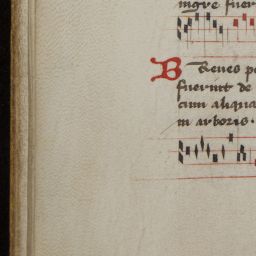 ingre fuer
Breues p
fuerint de
cum aliqua
in arboris.